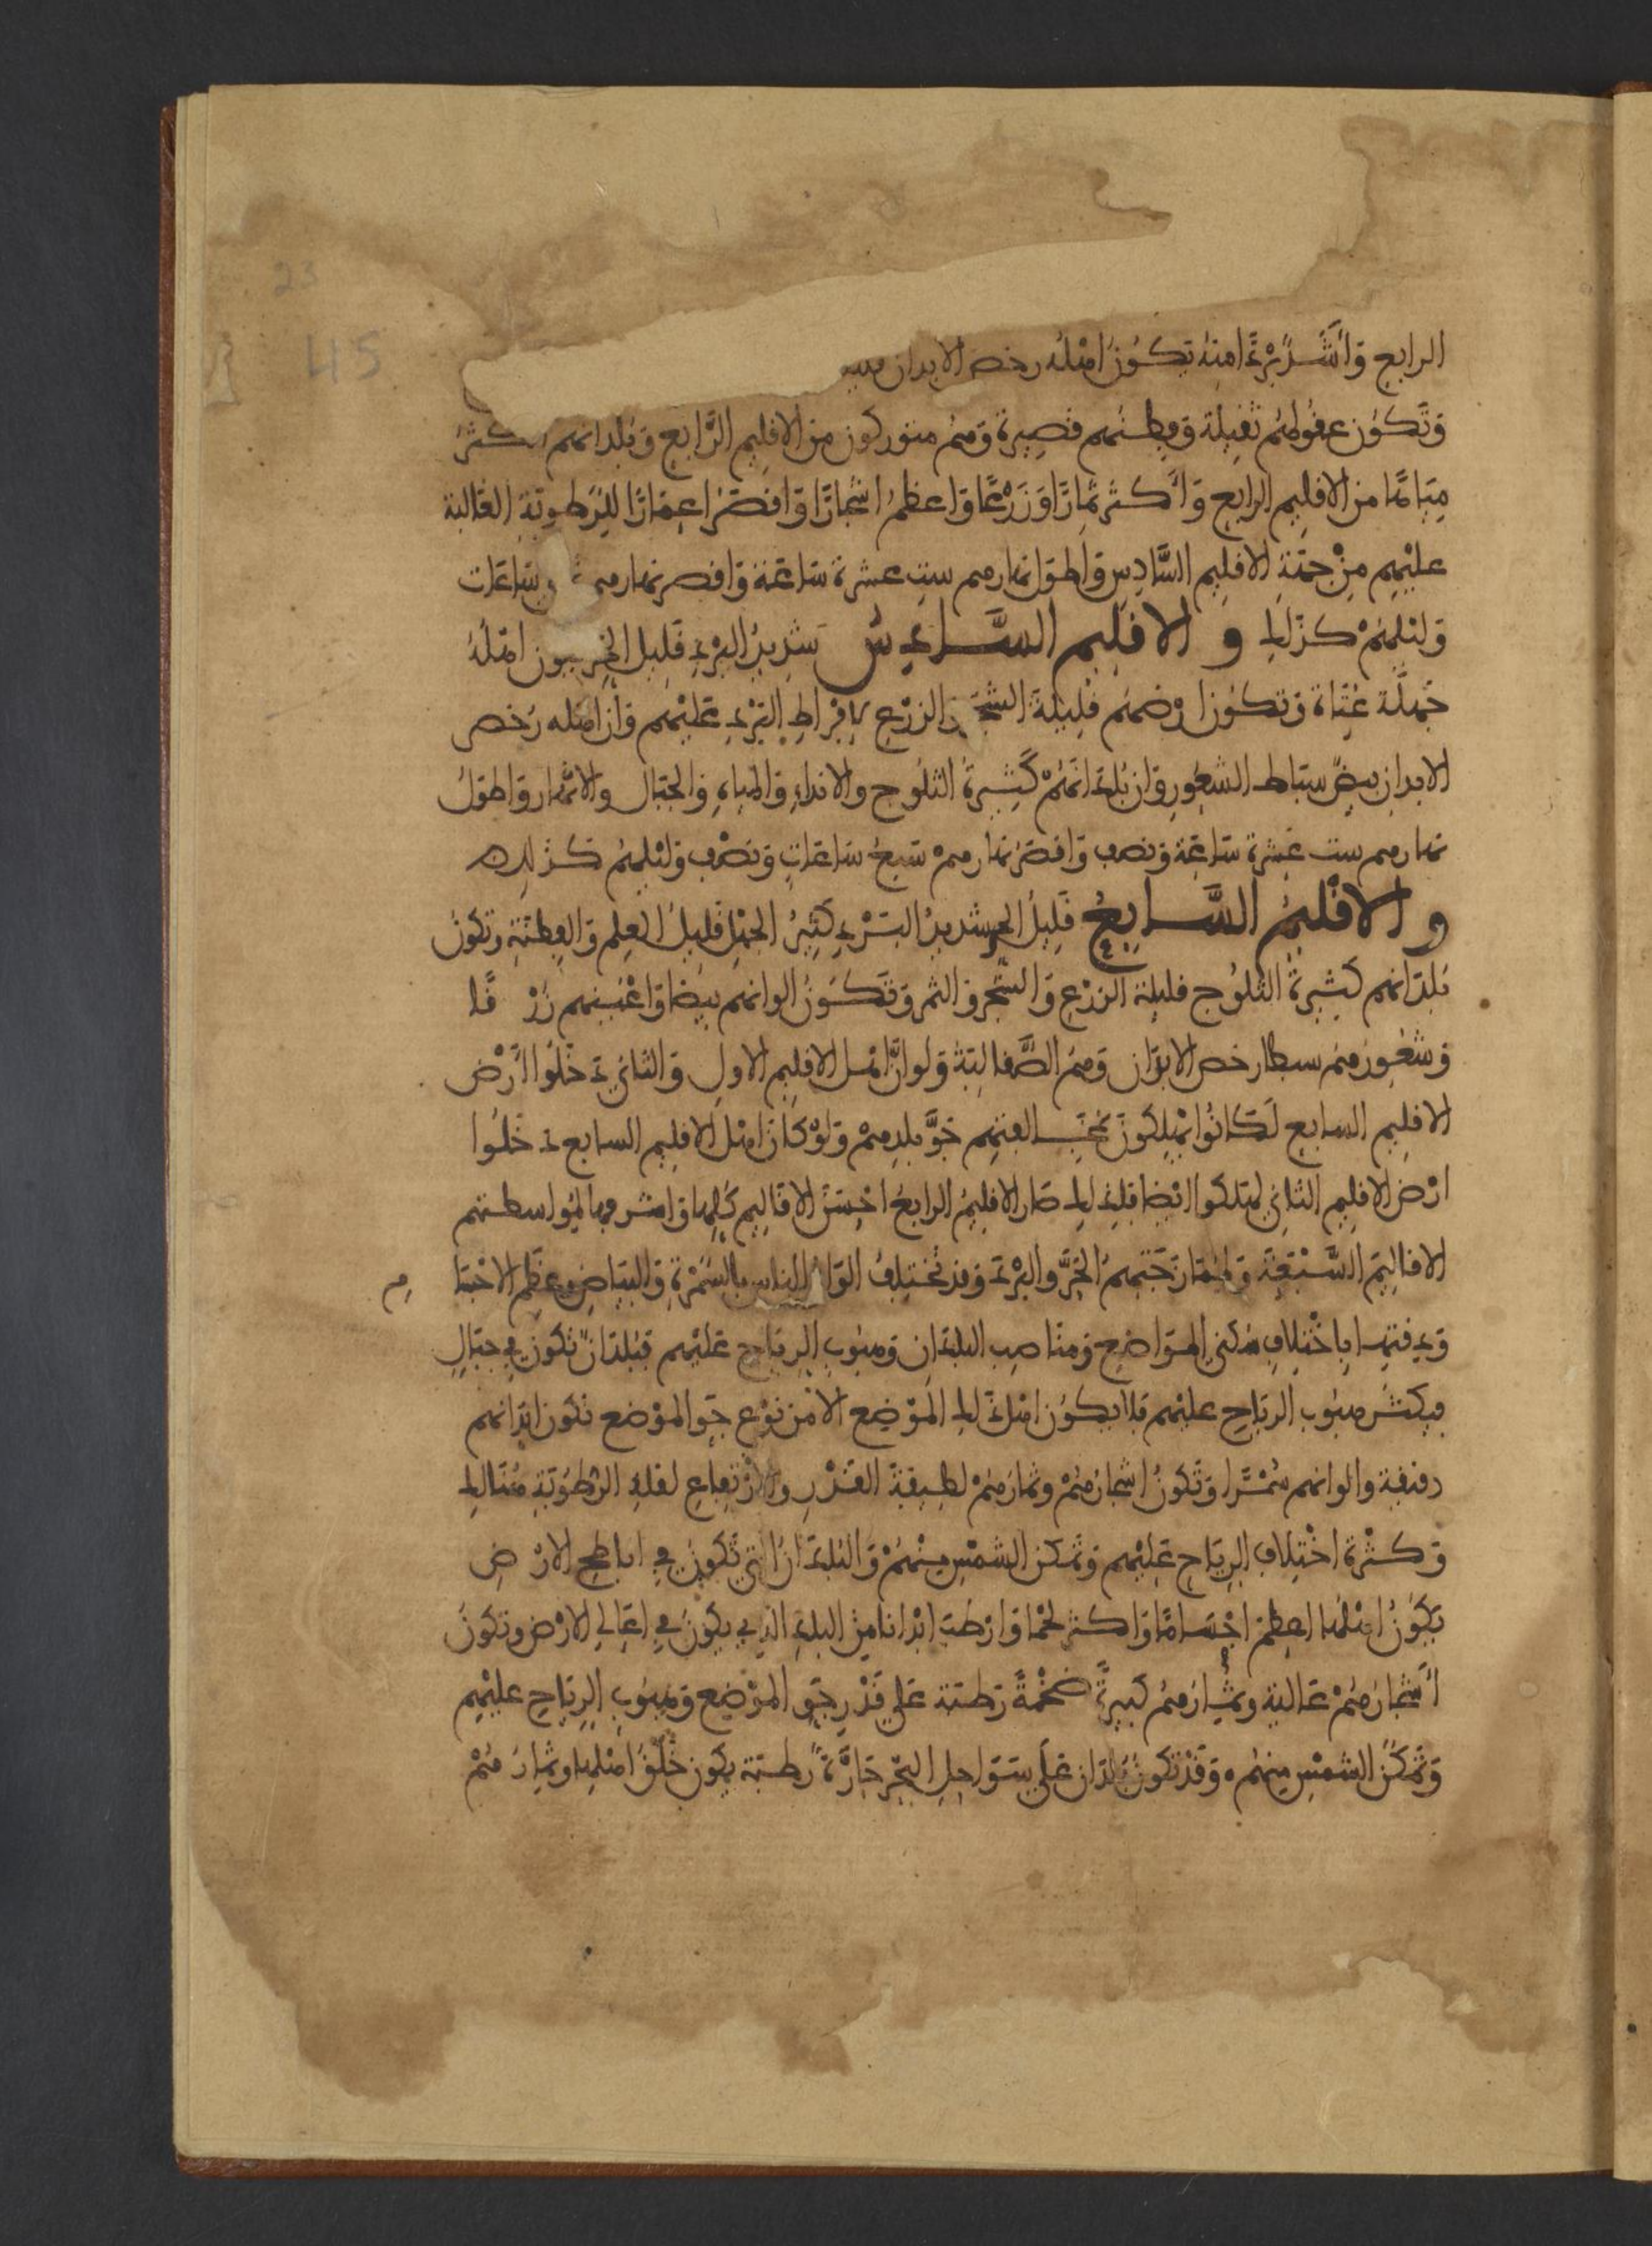 23
45
الرابع وَأشَدُّ بَرْدًا منهُ يكُونُ اهْلهُ رخص الابدان
وَتَكون عقُولهُم ثقيلة وَفِطنُهم قصِيرة وَهمْ متوركون من الاقليم الرَّابع وَبُلدانهم اكثرُ
مِيَاهًا من الاقليم الرابع وَأكثرُ ثِمارًا وَزَرْعًا وَاعظمُ اشجارًا وَاقصَرُ اعمَارًا للرَّطوبَةِ الغَالبة
عليْهِم مِنْ جهَةِ الاقليم السَّادِس وَاطوَل نهارهم ست عشرة سَاعَة وَاقصر نهارهم ساعَات
وَليْلهمْ كذَالك والاقليم السَّادِسُ شدِيدُ البَرْدِ قليل الحر يكون اهْلهُ
جُهلَة عُتاة وَتكُون ارضهُم قليلةَ الشجَر والزرْع لإفرَاطِ البَرْدِ عَليْهم وَان اهله رُخص
الابدان بيضٌ سبَاط الشعُورِ وَان بُلدَانَهُمْ كَثِيرةُ الثلُوج والانداءِ وَالمياهِ وَالجبَال والانْهَار وَاطوَلُ
نهارهم ست عَشرة سَاعَة وَنصف وَاقصَرُ نهارهمْ سَبعُ سَاعَاتٍ وَنصْف وَليْلهمُ كذَلك
والاقليمُ السَّابعُ قليلُ الحر شديدُ البَرْدِ كثيرُ الجهْلِ قليلُ العلم وَالفِطنَةِ وَتكونُ
بُلدَانهم كثيرةُ الثلُوج قليلة الزرْعِ وَالشجَر وَالثمر وَتَكوُن الوانهم بيضا وَاعْيُنهم زُرْ قًا
وَشعُورُهمْ سباطا رخص الابدَان وَهمُ الصَّقالبَة وَلو انَّ اهْل الاقليم الاول وَالثاني دَخَلُوا أَرْضَ
الاقليم السابع لَكانُوا يهْلِكُونَ لمخَالفتِهِم جَوَّ بلدهمْ وَلوْ كَانَ اهْل الاقليم السابع دَخَلُوا
ارْض الاقليم الثاني لهَلكوا ايْضا فلذَلك صَار الاقليمُ الرابعُ احْسَنَ الاقاليم كلها وَاشرفها لموَاسطتهم
الاقاليمَ السَّبْعَة وَلمقَارَحَتهمُ الحَرَّ وَالبَرْدَ وَقد تختلفُ الوَان الناس بالسُّمْرَة وَالبيَاض وعظم الاجْسَا م
وَدِقتها باخْتلاف سُكنى الموَاضع وَمنَاصِب البلدَان وَهبُوب الريَاح عَليْهم فبُلدَانٌ تكون في جبَالٍ
فيكثرُ هبُوب الريَاح عليْهم فلا يكوُن اهْل ذَلك الموْضع الا من نوْع جَوّ الموْضع تكون ابْدَانهم
دقيقة والوانهم سُمْرًا وَتَكونُ اشجارُهُمْ وثمَارُهمْ لطيفةَ القَدْر والارْتفاعِ لقلةِ الرُّطوُبَةِ هُنَالك
وَكثْرة اخْتِلاف الريَاح عَليْهم وَتمكن الشمْس منهُمْ وَالبُلدَانُ التي تَكونُ في اباطح الارْ ض
يَكُونُ اهْلهُا اعظم اجْسَامًا وَاكثر لحْمًا وَارْطبَ ابْدَانا من البلَدِ الذِي يكُونُ في اعَالي الارْض وَتَكونُ
أَشْجارُهُمْ عَالية وثمَارُهمُ كبيرةً ضخْمةً رَطبَة عَلى قدْرِ جَوِّ الموْضع وَهبُوبِ الريَاح عليْهِم
وَتمكُّنَ الشمْس منهُمْ وَقدْ تكونُ بُلدَان عَلى سَوَاحِل البَحْر حَارَّةً رَطبَة يكون خَلْقُ اهْلها وثمارُ همْ